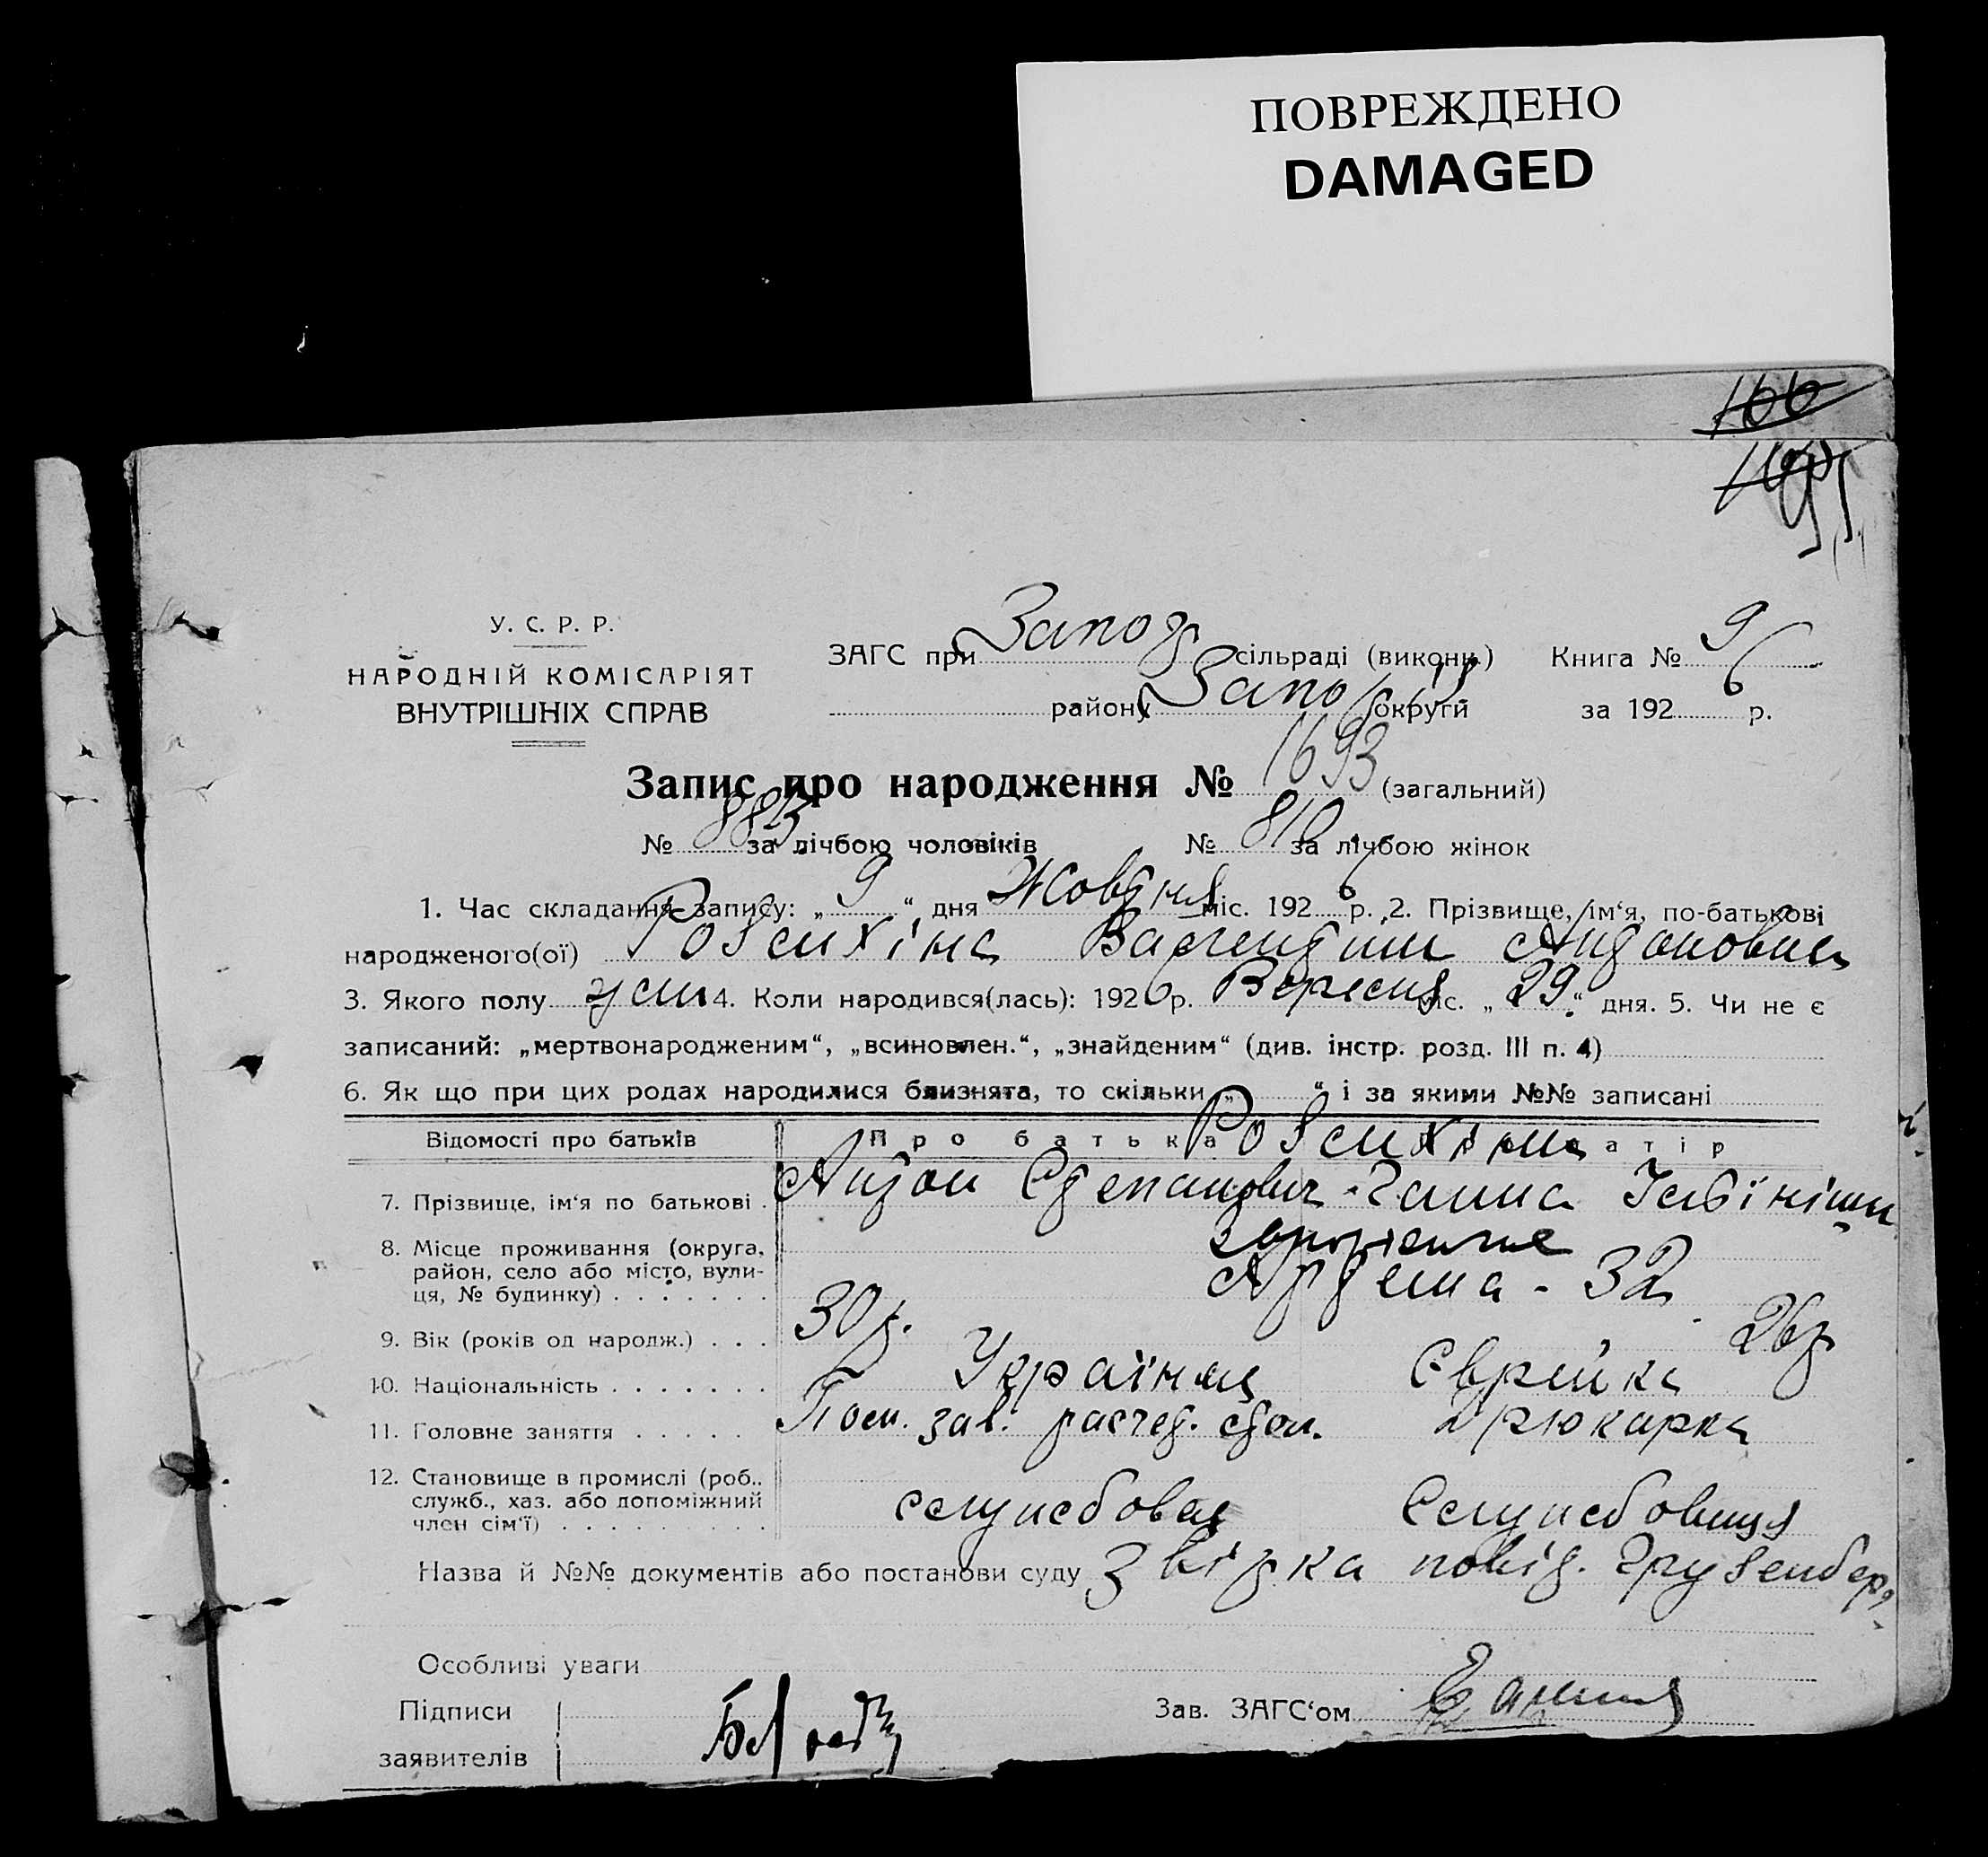 ПОВРЕЖДЕНО
DAMAGED
166
У. С. Р. Р.
НАРОДНІЙ КОМІСАРІЯТ
ВНУТРІШНІХ СПРАВ
ЗАГС при Запоз сільраді (виконк.) Книга № 9
району Запо округи за 1926 р.
Запис про народження № 1693 (загальний)
№ 883 за лічбою чоловіків № 810 за лічбою жінок
1. Час складання запису: „ 9 “ дня Жовтня міс. 1926 р. 2. Прізвище, ім‘я, по-батькові
народженого(ої) Валентин Антонович
3. Якого полу 4. Коли народився(лась): 1926 р. Вересня міс. „ 29 “ дня. 5. Чи не є
записаний: „мертвонародженим“, „всиновлен.“, „знайденим“ (див. інстр. розд. III п. 4)
6. Як що при цих родах народилися близнята, то скільки „ “ і за якими №№ записані
Відомості про батьків Про батька атір
7. Прізвище, ім‘я по батькові Антон Степанович Ганна
8. Місце проживання (округа, район, село або місто, вулиця, № будинку) Запоріжжє
Артема - 32
9. Вік (років од народж.) 30 р. 26 р
10. Національність Українец Єврейка
11. Головне заняття Пом. зав. стол. Друкарка
12. Становище в промислі (роб., служб., хаз. або допоміжний член сім‘ї) службовец Службовиця
Назва й №№ документів або постанови суду повід.
Особливі уваги
Підписи
заявителів
Зав. ЗАГС‘ом